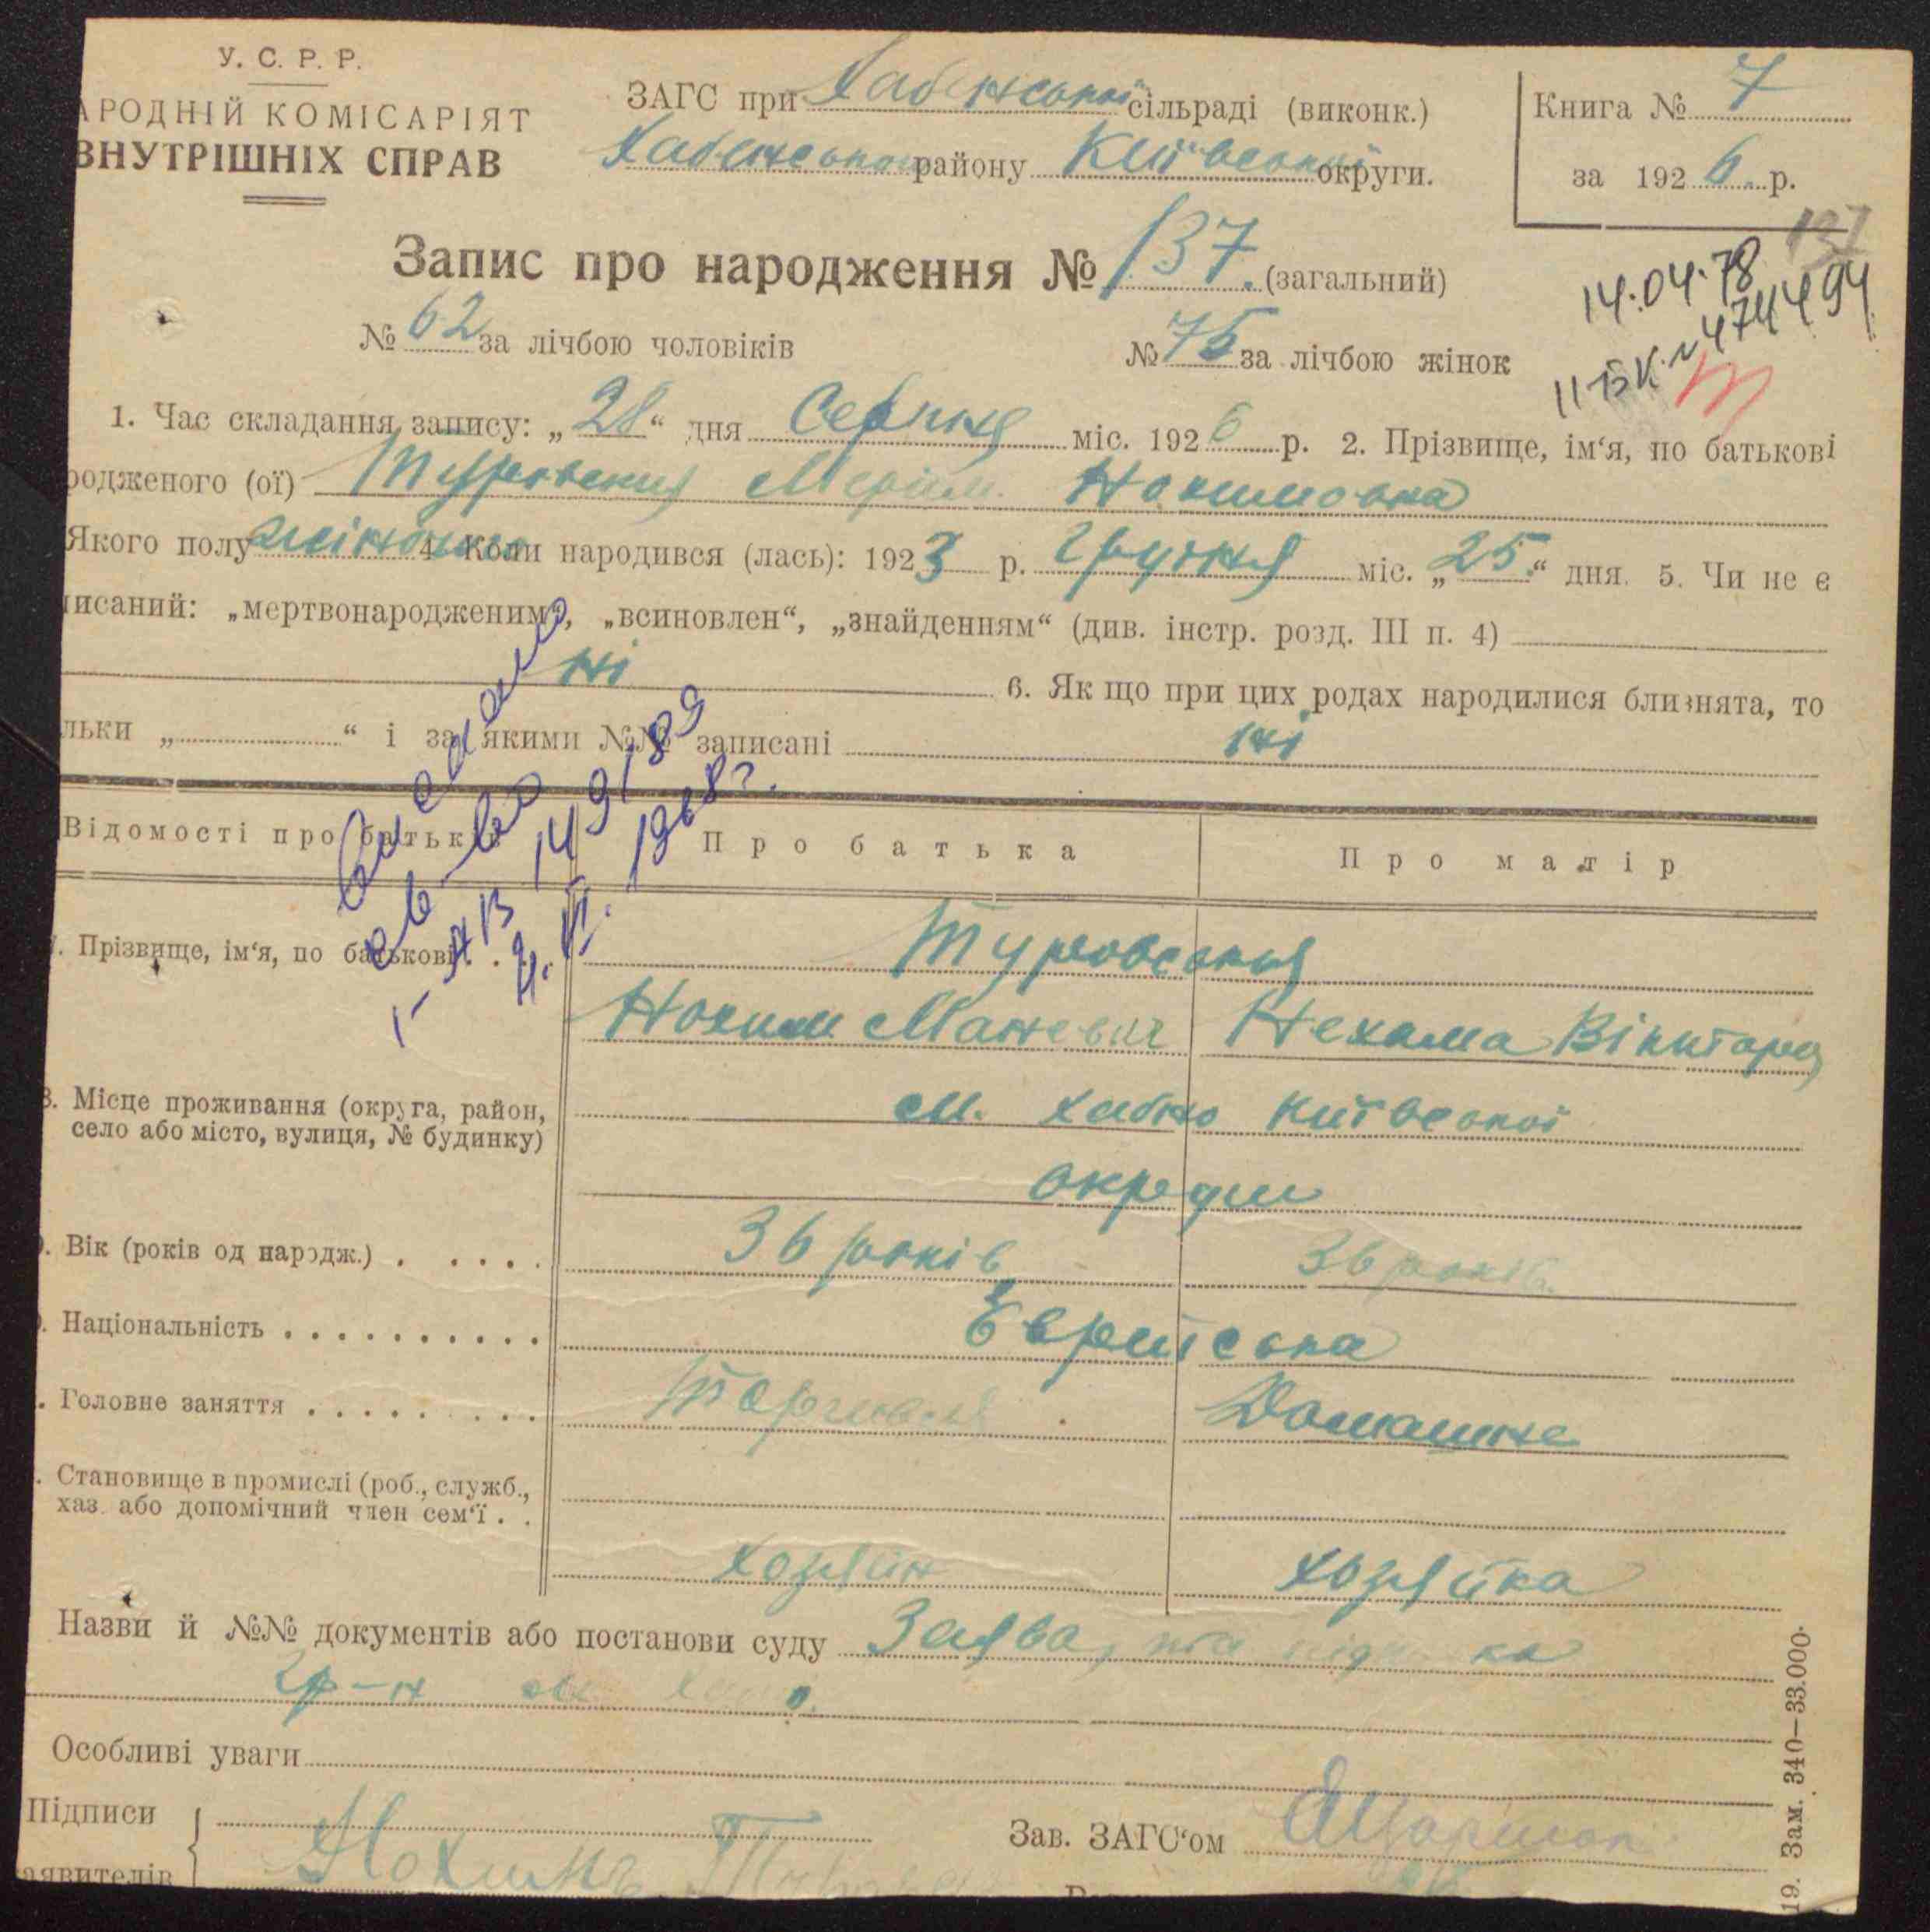 У. С. Р. Р.
АРОДНІЙ КОМІСАРІЯТ
ВНУТРІШНІХ СПРАВ
ЗАГС при Хабенській сільраді (виконк.)
Хабенського району Київської округи.
Книга № 7
за 1926 р.
137
Запис про народження № 137. (загальний)
14.04.78
№ 62 за лічбою чоловіків
№ 75 за лічбою жінок
1. Час складання запису: „28“ дня Серпня міс. 1926 р. 2. Прізвище, ім‘я, по батькові
родженого (ої) Туровская Мериам Нохимовна
Якого полу жіночого 4. Коли народився (лась): 1923 р. Грудня міс. „25“ дня. 5. Чи не є
писаний: „мертвонародженим“, „всиновлен“, „знайденням“ (див. інстр. розд. III п. 4)
ні 6. Як що при цих родах народилися близнята, то
льки „ “ і за якими №№ записані ні
Выдано
св-во
1-ЯВ 149189
1968 г.
Відомості про батьків
Про батька
Про матір
7. Прізвище, ім‘я, по батькові . .
Туровская
Нохим Маневич
Нехама
8. Місце проживання (округа, район, село або місто, вулиця, № будинку)
м. Хабно Київської
округи
Вік (років од народж.) . . . . .
36 років
36 років
Національність . . . . . . . . . .
Еврейська
Головне заняття . . . . . . . . .
Торговля
Домашнє
Становище в промислі (роб., служб., хаз. або допомічний член сем‘ї . .
хозяїн
хозяйка
Назви й №№ документів або постанови суду Заява,
гр-н
Особливі уваги
Підписи
аявителів
Нохимъ
Зав. ЗАГС‘ом
19. Зам. 340—33.000.